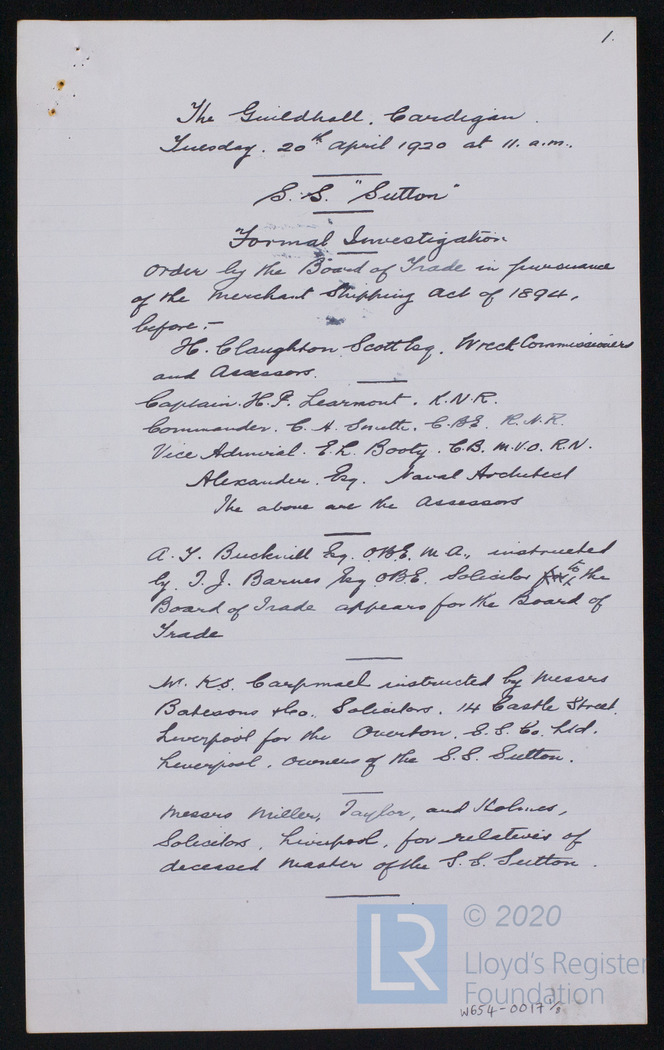 1.
The Guildhall, Cardigan.
Tuesday. 20th April 1920 at 11. a.m.
S.S. "Sutton"
Formal Investigation
Order by the Board of Trade in pursuance
of the Merchant Shipping Act of 1894,
before:-
H. Claughton Scott Esq. Wreck Commissioners
and Assessors.
Captain. H. P. Learmont. R.N.R.
Commander. C. A. Smith. C.B.E. R.N.R.
Vice Admiral. E. L. Booty. C.B. M.V.O. R.N.
Alexander. Esq. Naval Architect
The above are the Assessors
A. T. Bucknill Esq. O.B.E. M.A., instructed
by T. J. Barnes Esq O.B.E. Solicitor to the
Board of Trade appears for the Board of
Trade
W. K.S. Carpmael instructed by Messrs
Batesons & Co., Solicitors. 14 Castle Street.
Liverpool for the Overton. S.S. Co. Ltd.
Liverpool. owners of the S.S. Sutton.
Messrs Miller, Taylor, and Holmes,
Solicitors, Liverpool, for relatives of
deceased Master of the S.S. Sutton.
LR © 2020
Lloyd's Register
Foundation
W654-0017 1/8